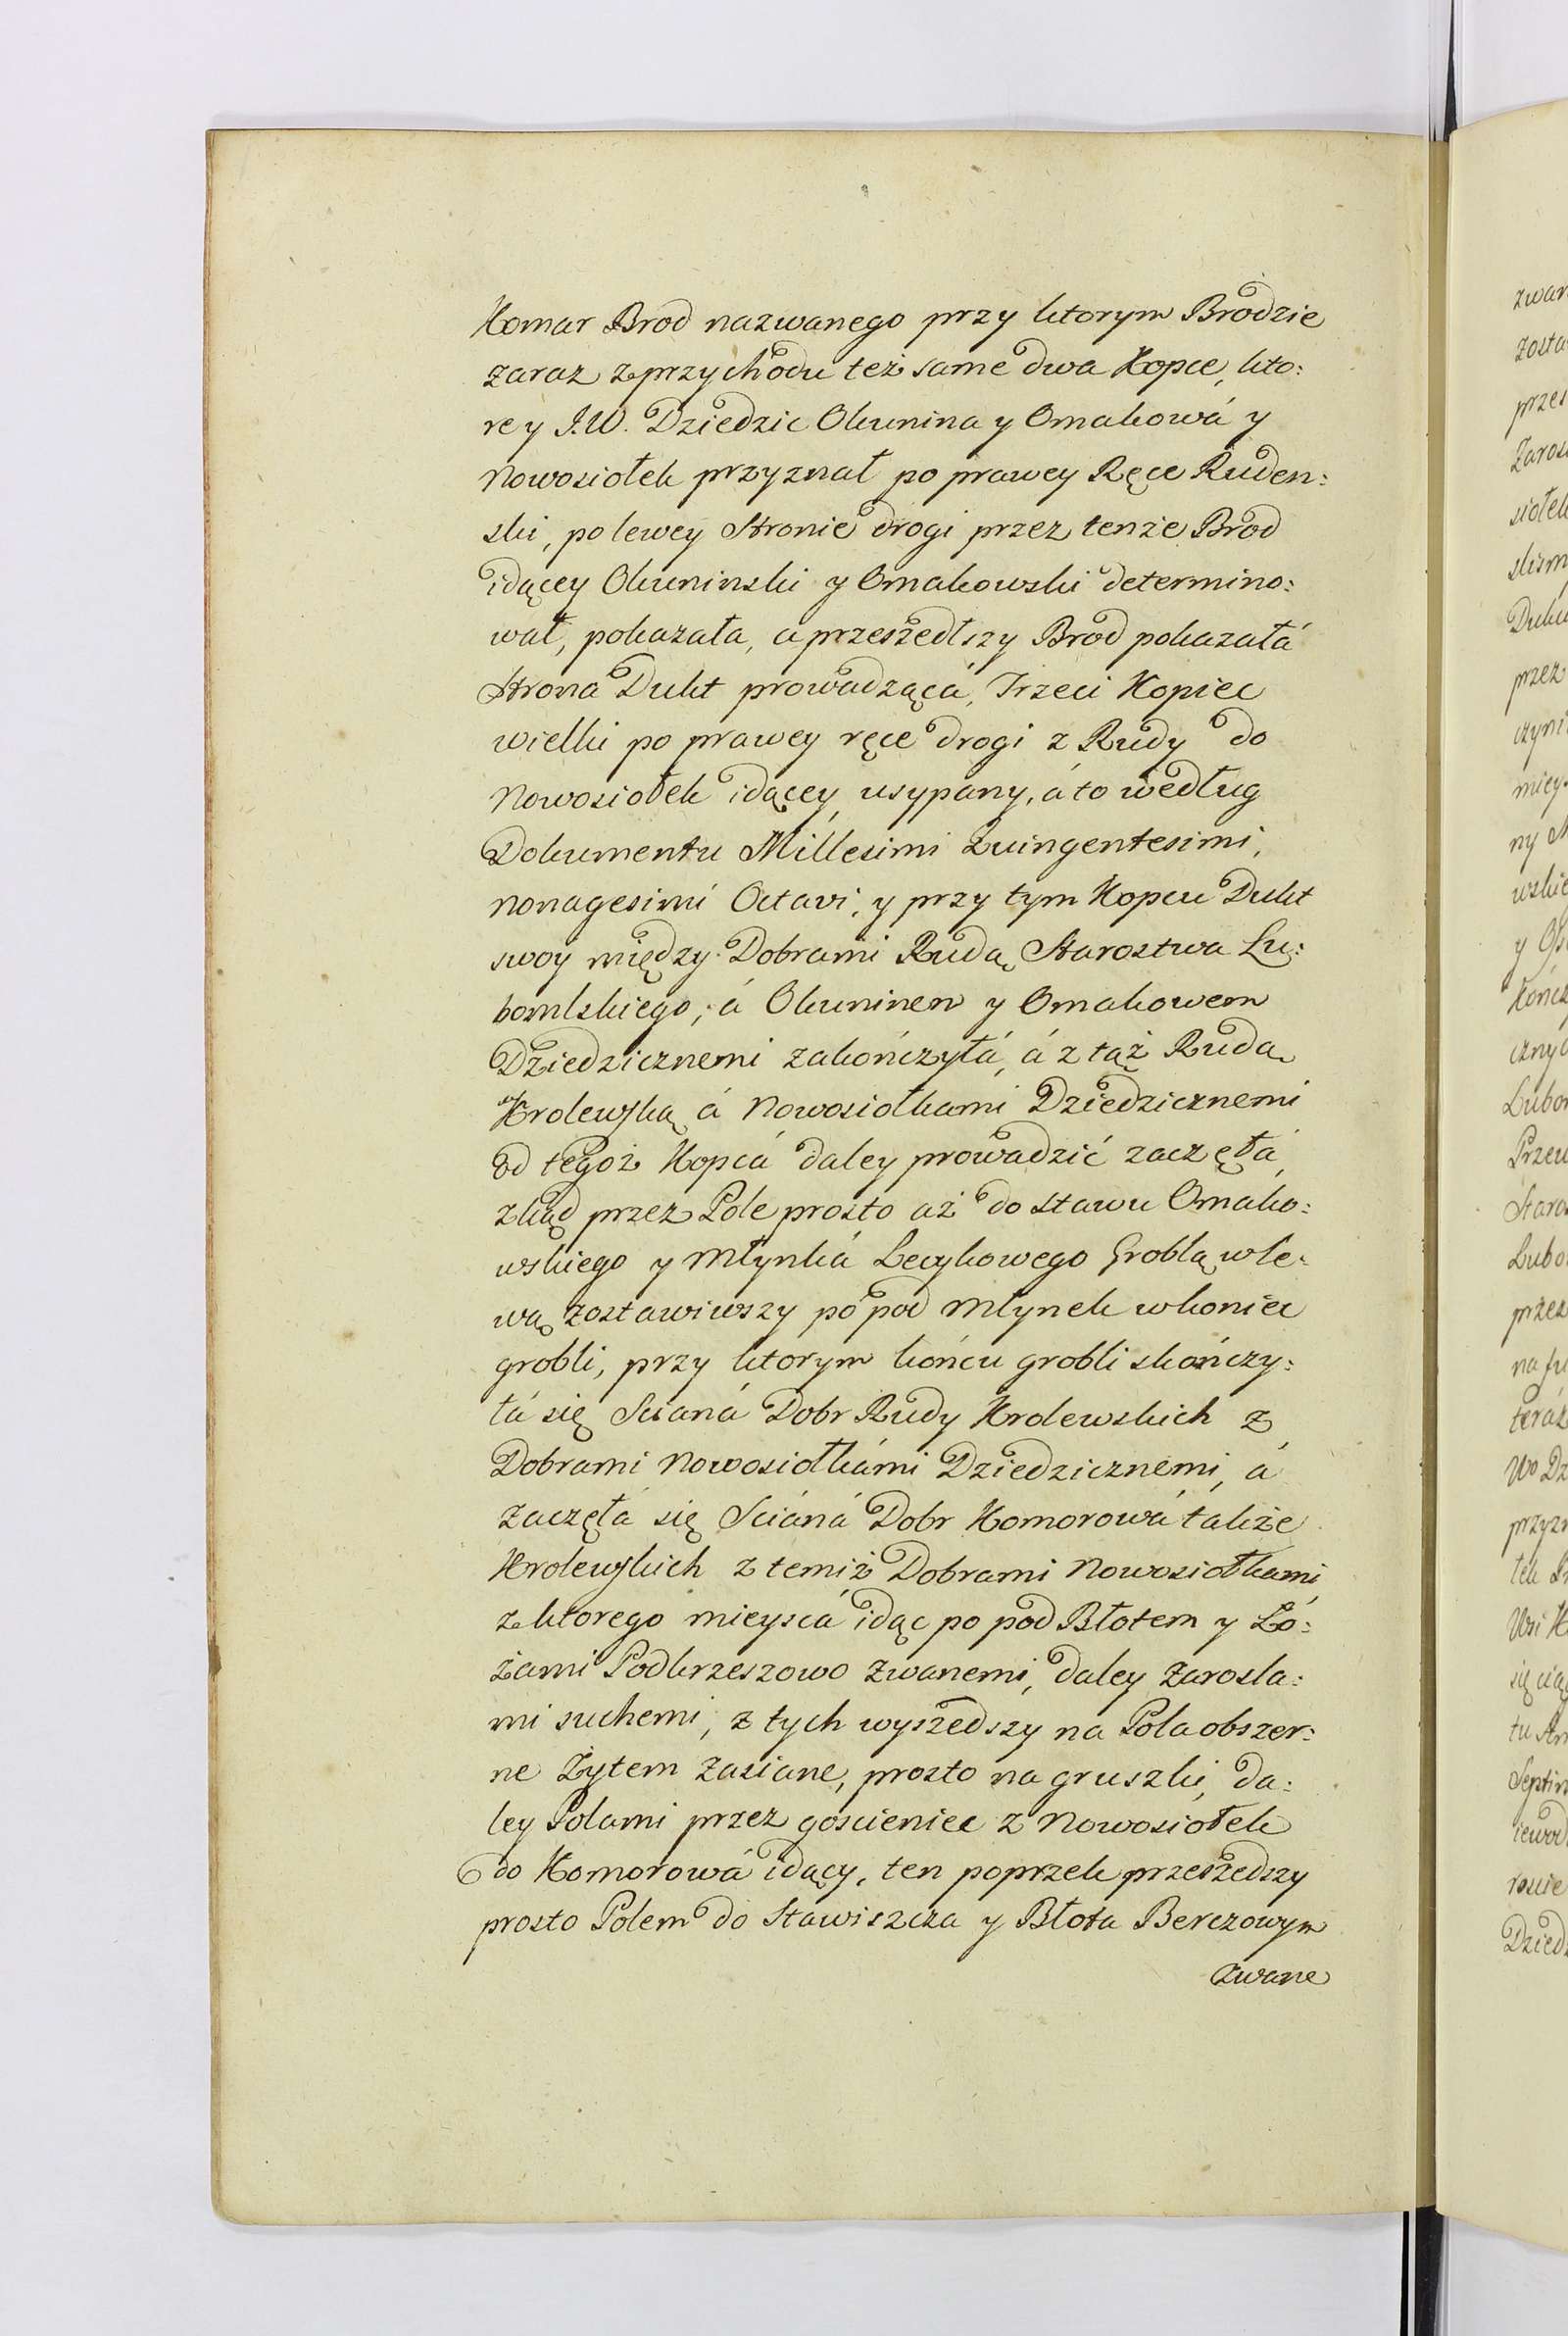 Komar Brod nazwanego przy ktorym Brodzie
zaraz z przychodu też same dwa Kopce, kto:
re y J.W. Dziedzic Okunina y Omakowá y
Nowosiołek przyznał po prawey Ręce Ruden:
ski, po lewey Stronie drogi przez tenże Brod
idącey Okuninski y Omakowski determino:
wał, pokazała, a przeszedłszy Brod pokazałá
Strona Dukt prowadzącá, Trzeci Kopiec
wielki po prawey ręce drogi z Rudy do
Nowosiołek idącey usypany, á to według
Dokumentu Millesimi Quingentesimi,
nonagesimi Octavi, y przy tym Kopcu Dukt
swoy między Dobrami Rudą Starostwa Lu:
bomlskiego, á Okuninem y Omakowem
Dziedzicznemi zakończyłá, á z tąż Rudą
Krolewską á Nowosiołkami Dziedzicznemi
od tegoż Kopcá daley prowadzić zaczęłá,
zkąd przez Pole prosto aż do stawu Omako:
wskiego y Młynká Lecykowego Groblą w le:
wą zostawiwszy po pod Młynek w koniec
grobli, przy ktorym końcu grobli skończy:
łá się Scianá Dobr Rudy Krolewskich z
Dobrami Nowosiołkámi Dziedzicznemi, á
zaczęłá się Sciáná Dobr Komorowá także
Krolewskich z temiż Dobrami Nowosiołkami
z ktorego mieyscá idąc po pod Błotem y Ło:
żami Podkrzeszowo zwanemi, daley zarosla:
mi suchemi, z tych wyszedszy na Pola obszer:
ne Żytem zasiane, prosto na gruszki, da:
ley Polami przez goscieniec z Nowosiołek
do Komorowá idący, ten poprzek przeszedszy
prosto Polem do Stawiszcza y Błota Berczowym
zwane
zwar
zosta
przes
Zaros
siołek
skim
przez
czyni
miey
ny
wskie
Kończ
czny
Lubo
Przew
Staro
Lubo
przez
teráz
przyz
się
Septim
Dzied